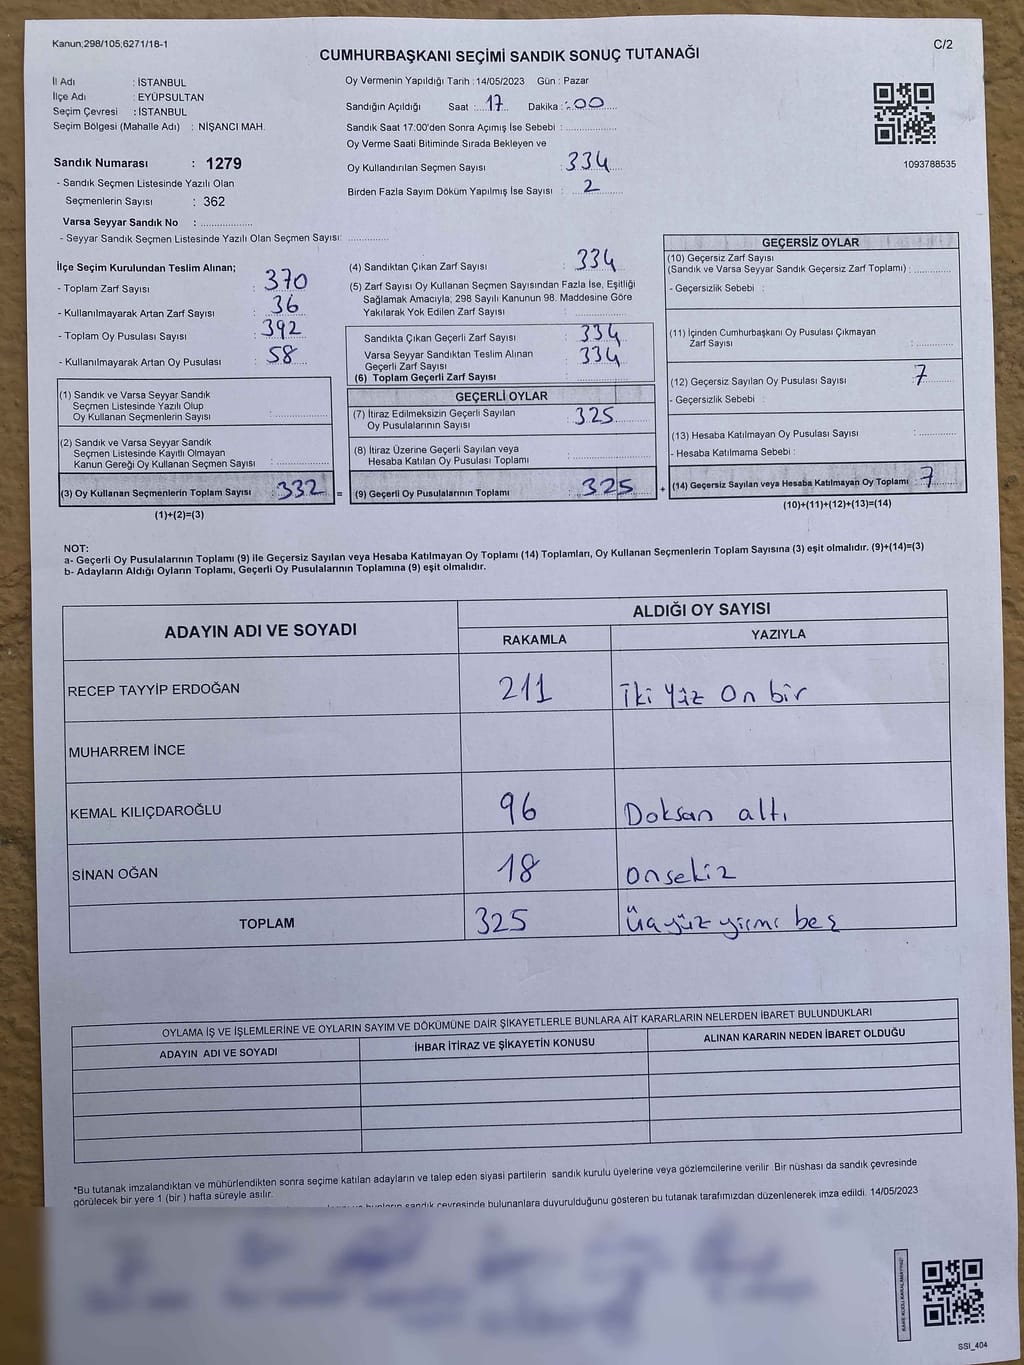 Kanun;298/105,6271/18-1
C/2
CUMHURBAŞKANI SEÇİMİ SANDIK SONUÇ TUTANAĞI
İl Adı : İSTANBUL
İlçe Adı : EYÜPSULTAN
Seçim Çevresi : İSTANBUL
Seçim Bölgesi (Mahalle Adı) : NİŞANCI MAH.
Sandık Numarası : 1279
- Sandık Seçmen Listesinde Yazılı Olan
Seçmenlerin Sayısı : 362
Varsa Seyyar Sandık No : ..................
- Seyyar Sandık Seçmen Listesinde Yazılı Olan Seçmen Sayısı: .............
Oy Vermenin Yapıldığı Tarih : 14/05/2023 Gün : Pazar
Sandığın Açıldığı Saat : 17 Dakika : 00
Sandık Saat 17:00'den Sonra Açımış İse Sebebi : .................
Oy Verme Saati Bitiminde Sırada Bekleyen ve
Oy Kullandırılan Seçmen Sayısı : 334
Birden Fazla Sayım Döküm Yapılmış İse Sayısı : 2
1093788535
İlçe Seçim Kurulundan Teslim Alınan;
- Toplam Zarf Sayısı : 370
- Kullanılmayarak Artan Zarf Sayısı : 36
- Toplam Oy Pusulası Sayısı : 392
- Kullanılmayarak Artan Oy Pusulası : 58
(1) Sandık ve Varsa Seyyar Sandık
Seçmen Listesinde Yazılı Olup
Oy Kullanan Seçmenlerin Sayısı : .................
(2) Sandık ve Varsa Seyyar Sandık
Seçmen Listesinde Kayıtlı Olmayan
Kanun Gereği Oy Kullanan Seçmen Sayısı : .................
(3) Oy Kullanan Seçmenlerin Toplam Sayısı : 332 =
(1)+(2)=(3)
(4) Sandıktan Çıkan Zarf Sayısı : 334
(5) Zarf Sayısı Oy Kullanan Seçmen Sayısından Fazla İse, Eşitliği
Sağlamak Amacıyla, 298 Sayılı Kanunun 98. Maddesine Göre
Yakılarak Yok Edilen Zarf Sayısı : .................
Sandıkta Çıkan Geçerli Zarf Sayısı : 334
Varsa Seyyar Sandıktan Teslim Alınan
Geçerli Zarf Sayısı : 334
(6) Toplam Geçerli Zarf Sayısı : .................
GEÇERLİ OYLAR
(7) İtiraz Edilmeksizin Geçerli Sayılan
Oy Pusulalarının Sayısı : 325
(8) İtiraz Üzerine Geçerli Sayılan veya
Hesaba Katılan Oy Pusulası Toplamı : .................
(9) Geçerli Oy Pusulalarının Toplamı : 325 +
GEÇERSİZ OYLAR
(10) Geçersiz Zarf Sayısı
(Sandık ve Varsa Seyyar Sandık Geçersiz Zarf Toplamı) : .............
- Geçersizlik Sebebi :
(11) İçinden Cumhurbaşkanı Oy Pusulası Çıkmayan
Zarf Sayısı : .............
(12) Geçersiz Sayılan Oy Pusulası Sayısı : 7
- Geçersizlik Sebebi :
(13) Hesaba Katılmayan Oy Pusulası Sayısı : .............
- Hesaba Katılmama Sebebi :
(14) Geçersiz Sayılan veya Hesaba Katılmayan Oy Toplamı : 7
(10)+(11)+(12)+(13)=(14)
NOT:
a- Geçerli Oy Pusulalarının Toplamı (9) ile Geçersiz Sayılan veya Hesaba Katılmayan Oy Toplamı (14) Toplamları, Oy Kullanan Seçmenlerin Toplam Sayısına (3) eşit olmalıdır. (9)+(14)=(3)
b- Adayların Aldığı Oyların Toplamı, Geçerli Oy Pusulalarının Toplamına (9) eşit olmalıdır.
ADAYIN ADI VE SOYADI
ALDIĞI OY SAYISI
RAKAMLA YAZIYLA
RECEP TAYYİP ERDOĞAN 211 İki Yüz On bir
MUHARREM İNCE
KEMAL KILIÇDAROĞLU 96 Doksan altı
SİNAN OĞAN 18 onsekiz
TOPLAM 325 üçyüz yirmi beş
OYLAMA İŞ VE İŞLEMLERİNE VE OYLARIN SAYIM VE DÖKÜMÜNE DAİR ŞİKAYETLERLE BUNLARA AİT KARARLARIN NELERDEN İBARET BULUNDUKLARI
ADAYIN ADI VE SOYADI İHBAR İTİRAZ VE ŞİKAYETİN KONUSU ALINAN KARARIN NEDEN İBARET OLDUĞU
*Bu tutanak imzalandıktan ve mühürlendikten sonra seçime katılan adayların ve talep eden siyasi partilerin sandık kurulu üyelerine veya gözlemcilerine verilir. Bir nüshası da sandık çevresinde
görülecek bir yere 1 (bir) hafta süreyle asılır.
sandık çevresinde bulunanlara duyurulduğunu gösteren bu tutanak tarafımızdan düzenlenerek imza edildi. 14/05/2023
SSI_404